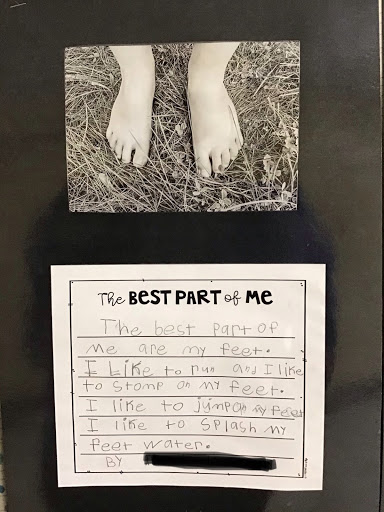 The BEST PART of ME
The best part of
me are my feet.
I like to run and I like
to stomp on my feet.
I like to jump on my feet
I like to splash my
feet water.
BY